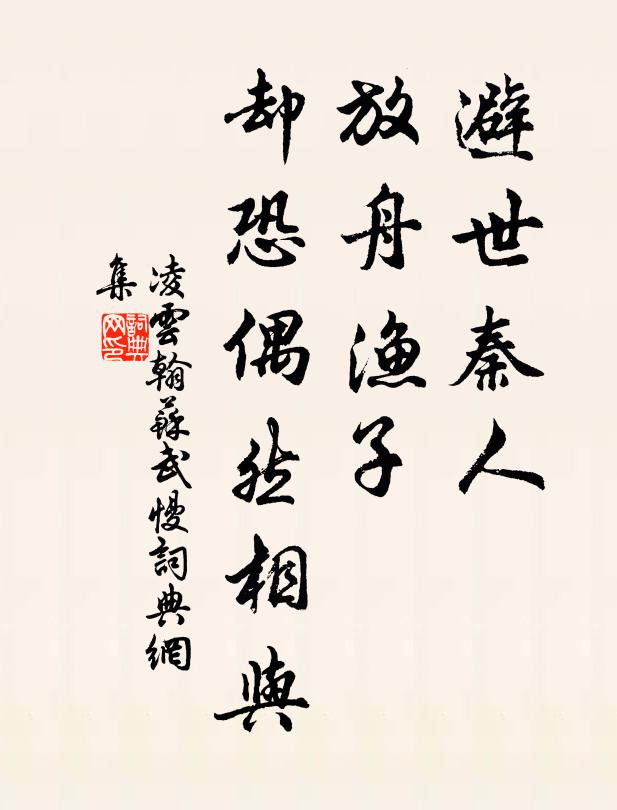 避世秦人
放舟漁子
却恐偶然相與
凌雲翰蘇武慢詞典網
集
詞典
网印